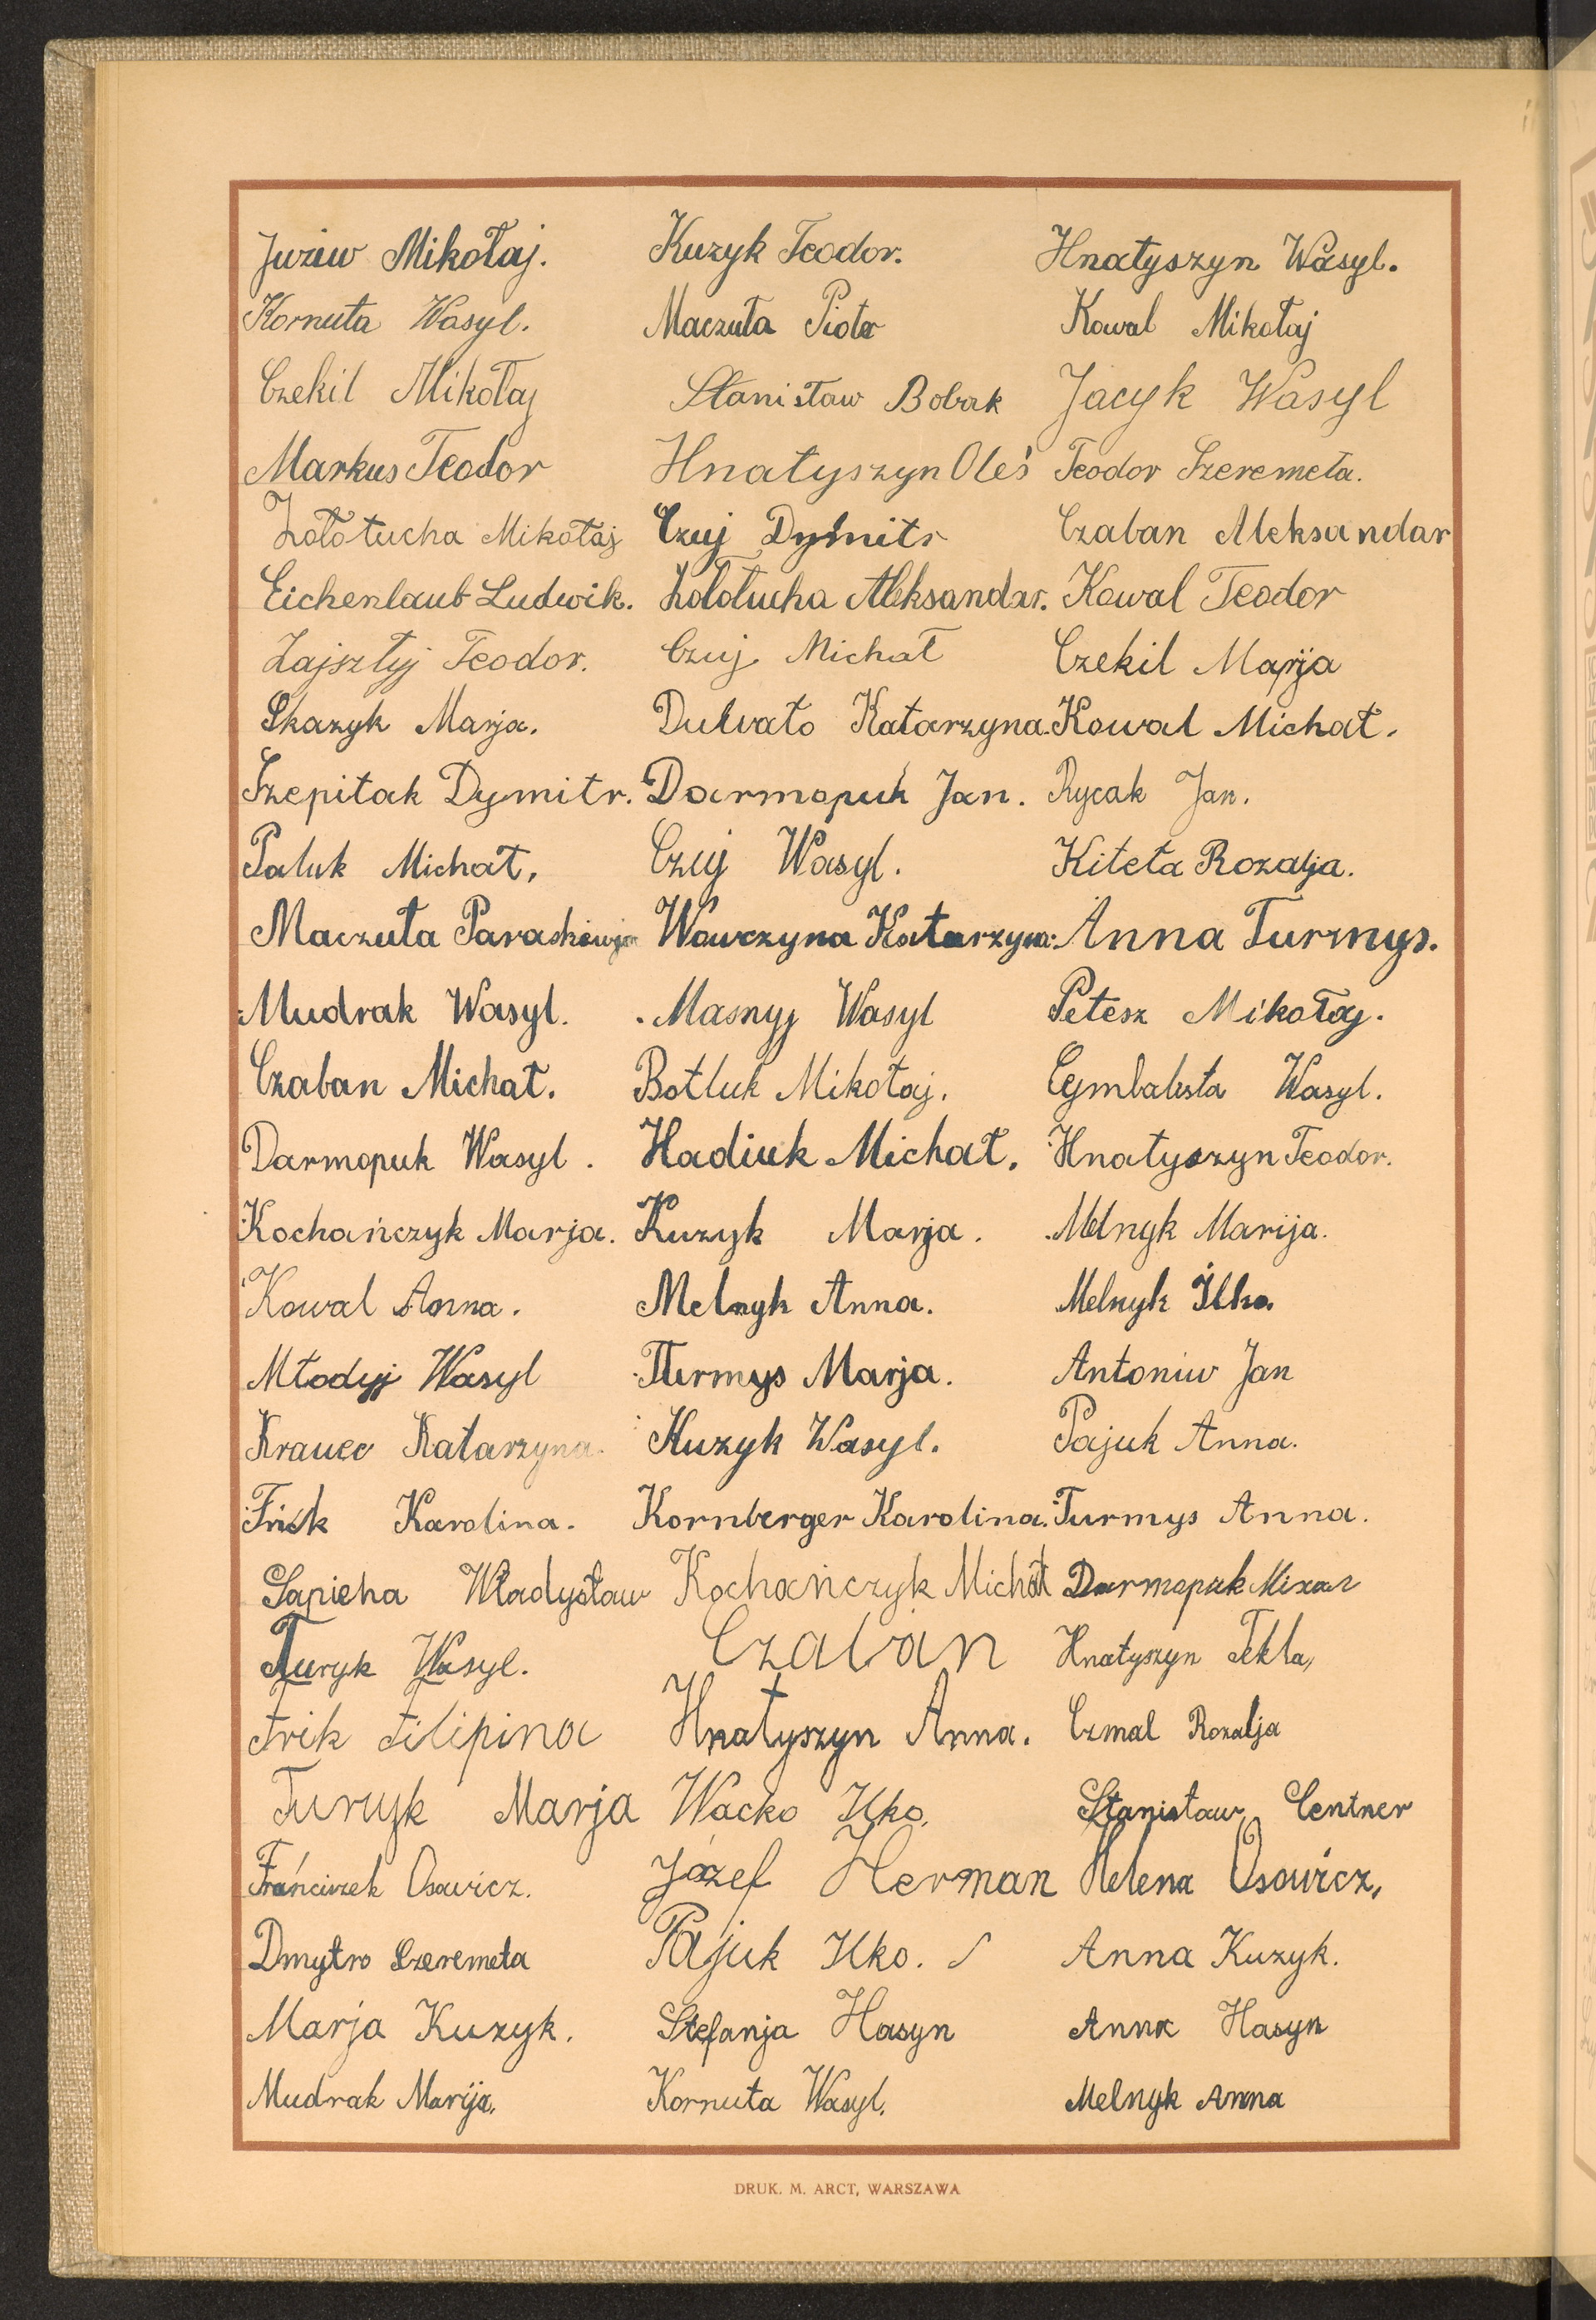 Juziw Mikołaj. Kuzyk Teodor. Hnatyszyn Wasyl.
Kornuta Wasyl. Maczuła Piotr Kowal Mikołaj
Czekil Mikołaj Stanisław Bobak Jacyk Wasyl
Markus Teodor Hnatyszyn Oleś Teodor Szeremeta.
Zołotucha Mikołaj Czuj Dymitr Czaban Aleksandar
Eichenlaub Ludwik. Zołotucha Aleksandar. Kowal Teodor
Zajsztyj Teodor. Czuj Michał Czekil Marja
Skazyk Marja. Katarzyna. Kowal Michał.
Szepitak Dymitr. Darmopuk Jan. Rycak Jan.
Paluk Michał. Czuj Wasyl. Kiteta Rozalja.
Maczuła Paraskewja Wawczyna Katarzyna. Anna Turmys.
Mudrak Wasyl. Masnyj Wasyl Petesz Mikołaj.
Czaban Michał. Botluk Mikołaj. Cymbalista Wasyl.
Darmopuk Wasyl. Hadiuk Michał. Hnatyszyn Teodor.
Kochańczyk Marja. Kuzyk Marja. Melnyk Marija.
Kowal Anna. Melnyk Anna. Melnyk Ilko.
Młodyj Wasyl Turmys Marja. Antoniw Jan
Krawec Katarzyna. Kuzyk Wasyl. Pajuk Anna.
Frik Karolina. Kornberger Karolina. Turmys Anna.
Sapieha Władysław Kochańczyk Michał Darmopuk Михал
Turyk Wasyl. Czaban Hnatyszyn Tekla,
Frik Filipina Hnatyszyn Anna. Czmal Rozalja
Turyk Marja Wacko Ilko. Stanisław Centner
Frańciszek Osowicz. Józef Herman Helena Osowicz,
Dmytro Szeremeta Pajuk Ilko. Anna Kuzyk.
Marja Kuzyk. Stefanja Hasyn Anna Hasyn
Mudrak Marija. Kornuta Wasyl. Melnyk Anna
DRUK. M. ARCT, WARSZAWA